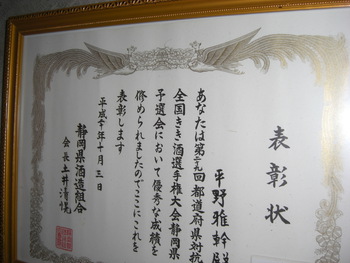 表彰状
平野雅幹殿
あなたは第二九回都道府県対抗
全国きき酒選手権大会静岡県
予選会において優秀な成績を
修められましたのでここにこれを
表彰します
平成十年十月三日
静岡県酒造組合
会長土井清愰